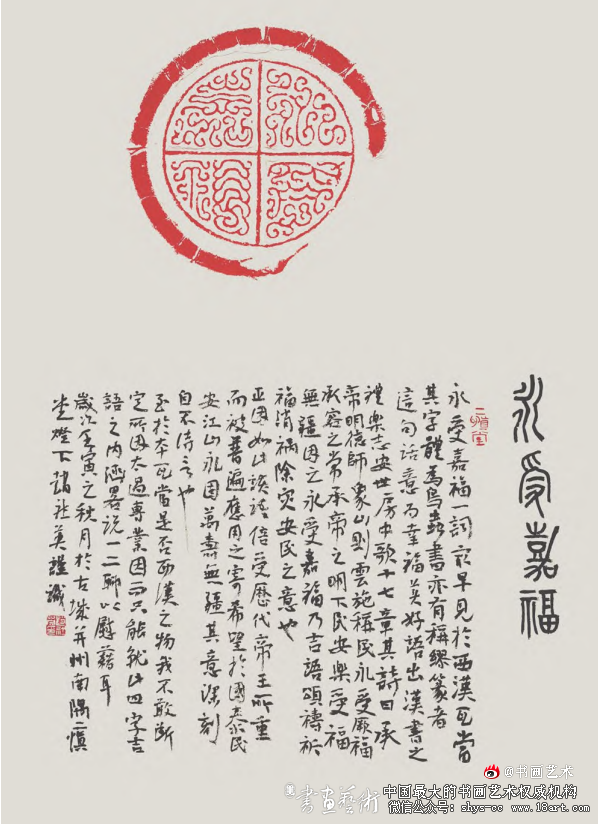 永受嘉福
永受嘉福一詞最早見於西漢瓦當
其字體為鳥蟲書亦有稱繆篆者
這句話意為幸福美好語出漢書之
禮樂志安世房中歌十七章其詩曰承
帝明德師象山則雲施稱民永受厥福
承容之常承帝之明下民安樂受福
無疆因之永受嘉福乃吉語頌禱祈
福消禍除災安民之意也
正因如此該語倍受歷代帝王所重
而被普遍應用之寄希望於國泰民
安江山永固萬壽無疆其意深刻
自不待言也
至於本瓦當是否西漢之物我不敢斷
定所因太過專業因而只能就此四字吉
語之內涵畧說一二聊以慰藉耳
歲次壬寅之秋月於古城并州南隅二慎
堂燈下趙社英謹識
二慎堂
@书画艺术
書畫藝術
中国最大的书画艺术权威机构
微信公众号：shys-cc www.18art.com